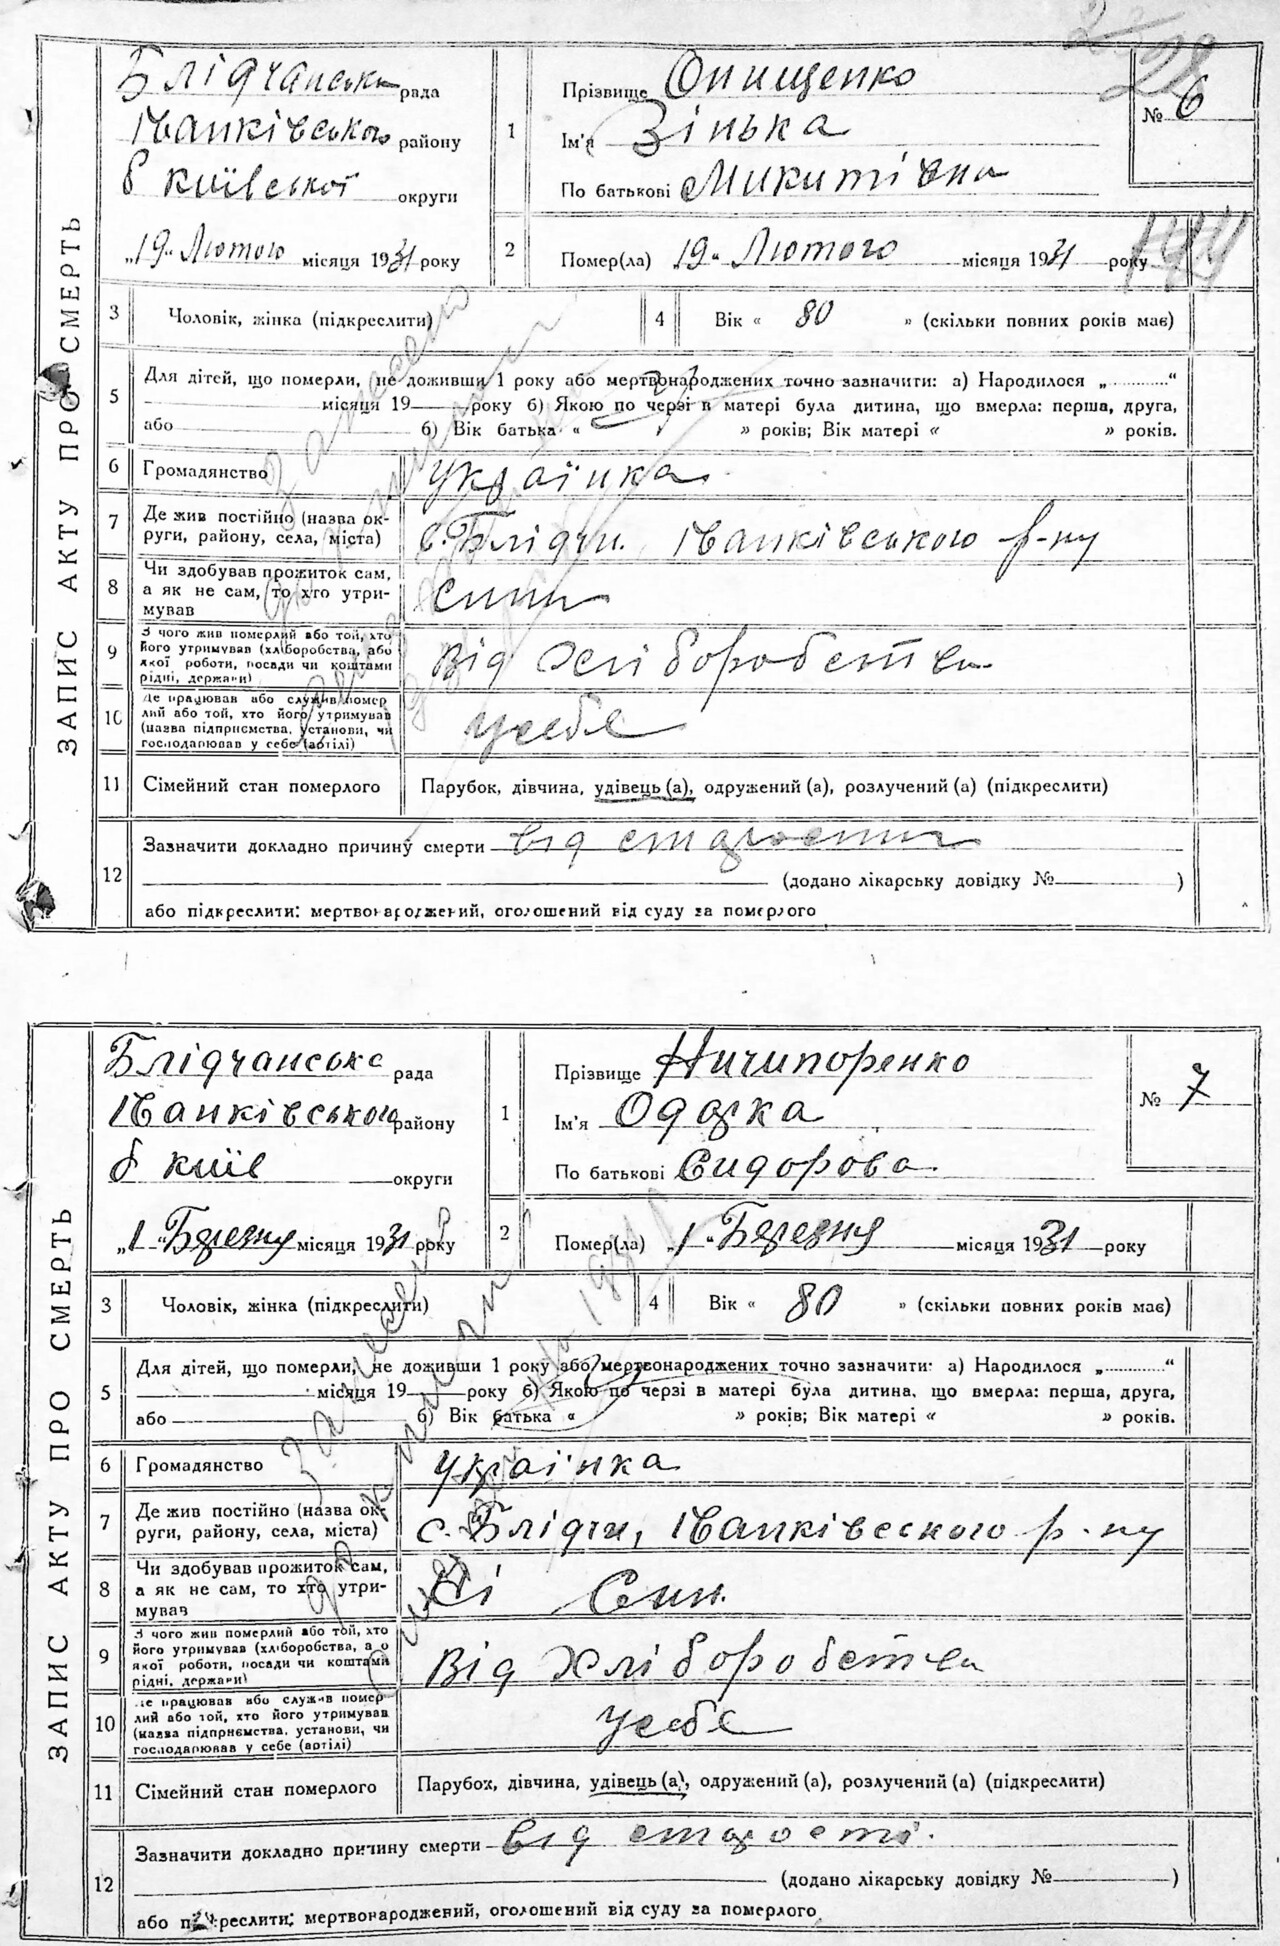 ЗАПИС АКТУ ПРО СМЕРТЬ
Блідчанська рада
Іванківського району
б Київської округи
„19“ Лютого місяця 1931 року
1
Прізвище Онищенко
Ім'я Зінька
По батькові Микитівна
№ 6
2
Помер(ла) „19“ Лютого місяця 1931 року
3
Чоловік, жінка (підкреслити)
4
Вік « 80 » (скільки повних років має)
5
Для дітей, що померли, не доживши 1 року або мертвонароджених точно зазначити: а) Народилося „ “
місяця 19 року б) Якою по черзі в матері була дитина, що вмерла: перша, друга,
або б) Вік батька « » років; Вік матері « » років.
6
Громадянство
українка
7
Де жив постійно (назва ок-
руги, району, села, міста)
с. Блідчи. Іванківського р-ну
8
Чи здобував прожиток сам,
а як не сам, то хто утри-
мував
сини
9
З чого жив померлий або той, хто
його утримував (хліборобства, або
якої роботи, посади чи коштами
рідні, держави)
Від Хліборобства
10
Де працював або служив помер
лий або той, хто його утримував
(назва підприємства, установи, чи
господарював у себе (артілі)
усебе
11
Сімейний стан померлого
Парубок, дівчина, удівець (а), одружений (а), розлучений (а) (підкреслити)
12
Зазначити докладно причину смерти від старости
(додано лікарську довідку № )
або підкреслити: мертвонароджений, оголошений від суду за померлого
ЗАПИС АКТУ ПРО СМЕРТЬ
Блідчанська рада
Іванківського району
б Київ округи
„1“ Березня місяця 1931 року
1
Прізвище Ничипоренко
Ім'я Одарка
По батькові Сидорова
№ 7
2
Помер(ла) „1“ Березня місяця 1931 року
3
Чоловік, жінка (підкреслити)
4
Вік « 80 » (скільки повних років має)
5
Для дітей, що померли, не доживши 1 року або мертвонароджених точно зазначити: а) Народилося „ “
місяця 19 року б) Якою по черзі в матері була дитина, що вмерла: перша, друга,
або б) Вік батька « » років; Вік матері « » років.
6
Громадянство
українка
7
Де жив постійно (назва ок-
руги, району, села, міста)
с. Блідчи, Іванківського р-ну
8
Чи здобував прожиток сам,
а як не сам, то хто утри-
мував
її Син.
9
З чого жив померлий або той, хто
його утримував (хліборобства, або
якої роботи, посади чи коштами
рідні, держави)
Від Хліборобства
10
Де працював або служив помер
лий або той, хто його утримував
(назва підприємства, установи, чи
господарював у себе (артілі)
усебе
11
Сімейний стан померлого
Парубок, дівчина, удівець (а), одружений (а), розлучений (а) (підкреслити)
12
Зазначити докладно причину смерти від старості.
(додано лікарську довідку № )
або підкреслити: мертвонароджений, оголошений від суду за померлого